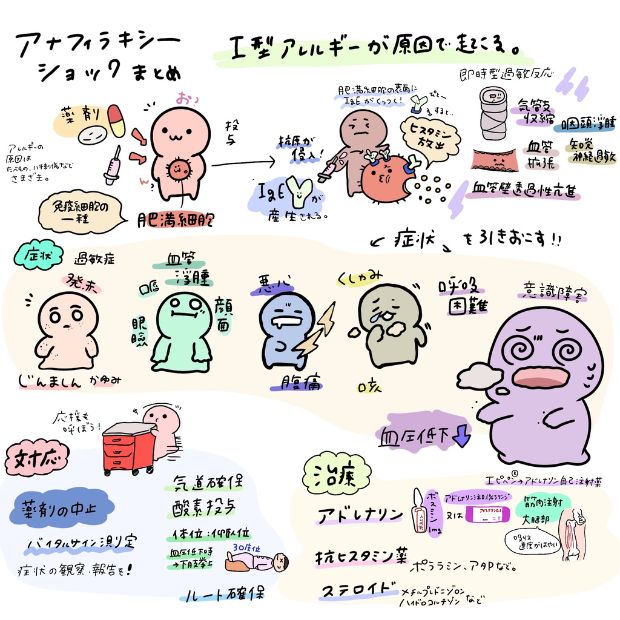 アナフィラキシー
ショックまとめ
Ⅰ型アレルギーが原因で起こる。
即時型過敏反応
薬剤
アレルギーの
原因は
さまざま。
おっ
投与
免疫細胞の
一種
肥満細胞
抗原が
侵入!
IgEが
産生される。
肥満細胞の表面に
IgEがくっつく!
すると…
ヒスタミン
放出
気管支
収縮
咽頭浮腫
血管
拡張
知覚
神経過敏
血管壁透過性亢進
← 症状 を引きおこす!!
症状
過敏症
発赤
じんましん かゆみ
血管
浮腫
口唇
眼瞼
顔面
悪心
腹痛
くしゃみ
咳
呼吸
困難
意識障害
血圧低下
応援も
呼ぼう!
対応
薬剤の中止
バイタルサイン測定
症状の観察・報告を!
気道確保
酸素投与
体位:仰臥位
血圧低下時
→下肢挙上
30度位
ルート確保
エピペン®→アドレナリン自己注射薬
治療
アドレナリン
ボスミン
1mg
又は
アドレナリン注0.1%シリンジ
筋肉注射
大腿部
吸収
速度がはやい
抗ヒスタミン薬
ポララミン、アタPなど。
ステロイド
メチルプレドニゾロン
ハイドロコルチゾン など